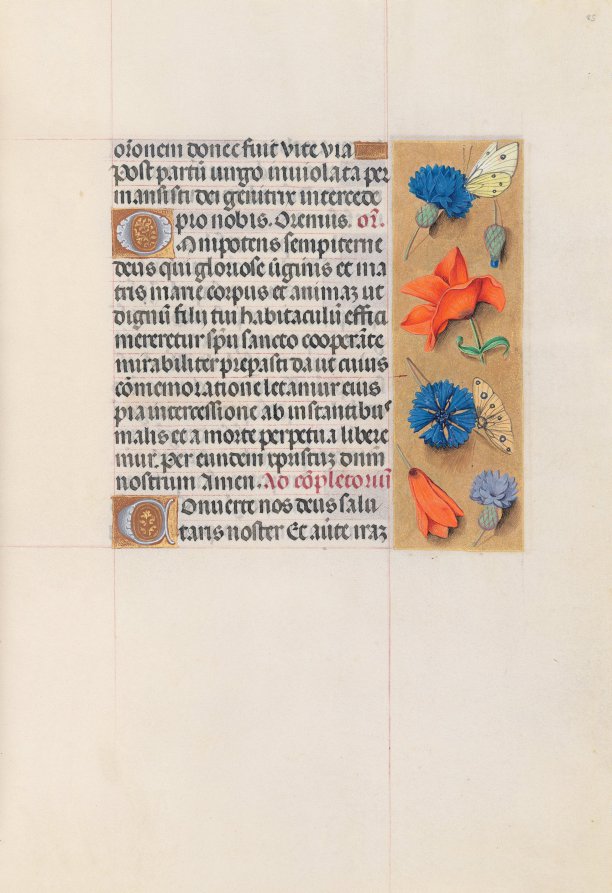 85
or̃onem donec fuit vite via
Post partũ uirgo inuiolata per
mansisti dei genitrix intercede
pro nobis. Oremus. or̃.
Omnipotens sempiterne
deus qui gloriose ũginis et ma
tris marie corpus et animaz ut
dignũ filij tui habitaculũ effici
mereretur sp̃u sancto cooperãte
mirabiliter preparasti da ut cuius
cõmemoratione letamur eius
pia intercessione ab instantibus
malis et a morte perpetua libere
mur. Per eundem xpristuz dñm
nostrum Amen. Ad cõpletoriũ
Conuerte nos deus salu
taris noster Et aũte iraz